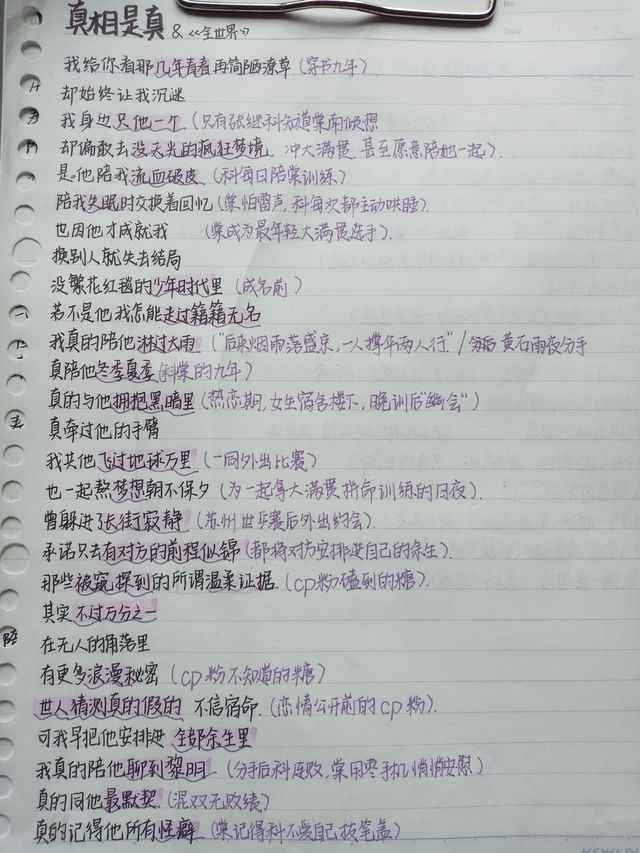 真相是真 & 《全世界》
我给你看那几年青春再简陋潦草（穿书九年）
却始终让我沉迷
我身边只他一个（只有张继科知道棠南倾想
却偏敢去没天光的疯狂梦境 冲大满贯，甚至愿意陪她一起）.
是他陪我流血破皮（科每日陪棠训练）
陪我失眠时交换着回忆（棠怕雷声，科每次都主动哄睡）.
也因他才成就我 （棠成为最年轻大满贯选手）.
换别人就失去结局
没繁花红毯的少年时代里（成名前）
若不是他我怎能走过籍籍无名
我真的陪他淋过大雨（"后来烟雨落盛京，一人撑伞两人行"/分后 黄石雨夜分手
真陪他冬季夏季（科棠的九年）
真的与他拥抱黑暗里（热恋期，女生宿舍楼下，晚训后"幽会"）
真牵过他的手臂
我共他飞过地球万里（一同外出比赛）
也一起熬梦想朝不保夕（为一起拿大满贯拼命训练的日夜）.
曾躲进了长街寂静（苏州世乒赛后外出约会）.
承诺只去有对方的前程似锦（都将对方安排进自己的余生）.
那些被窥探到的所谓温柔证据（cp粉磕到的糖）.
其实不过万分之一
在无人的角落里
有更多浪漫秘密（cp粉不知道的糖）
世人猜测真的假的 不信宿命.（恋情公开前的cp粉）.
可我早把他安排进 全部余生里
我真的陪他聊到黎明（分手后科连败，棠用枣手机悄悄安慰）
真的同他最默契（混双无败绩）
真的记得他所有怪癖（棠记得科不爱自己拔笔盖）
No.
Date
KOKUYO